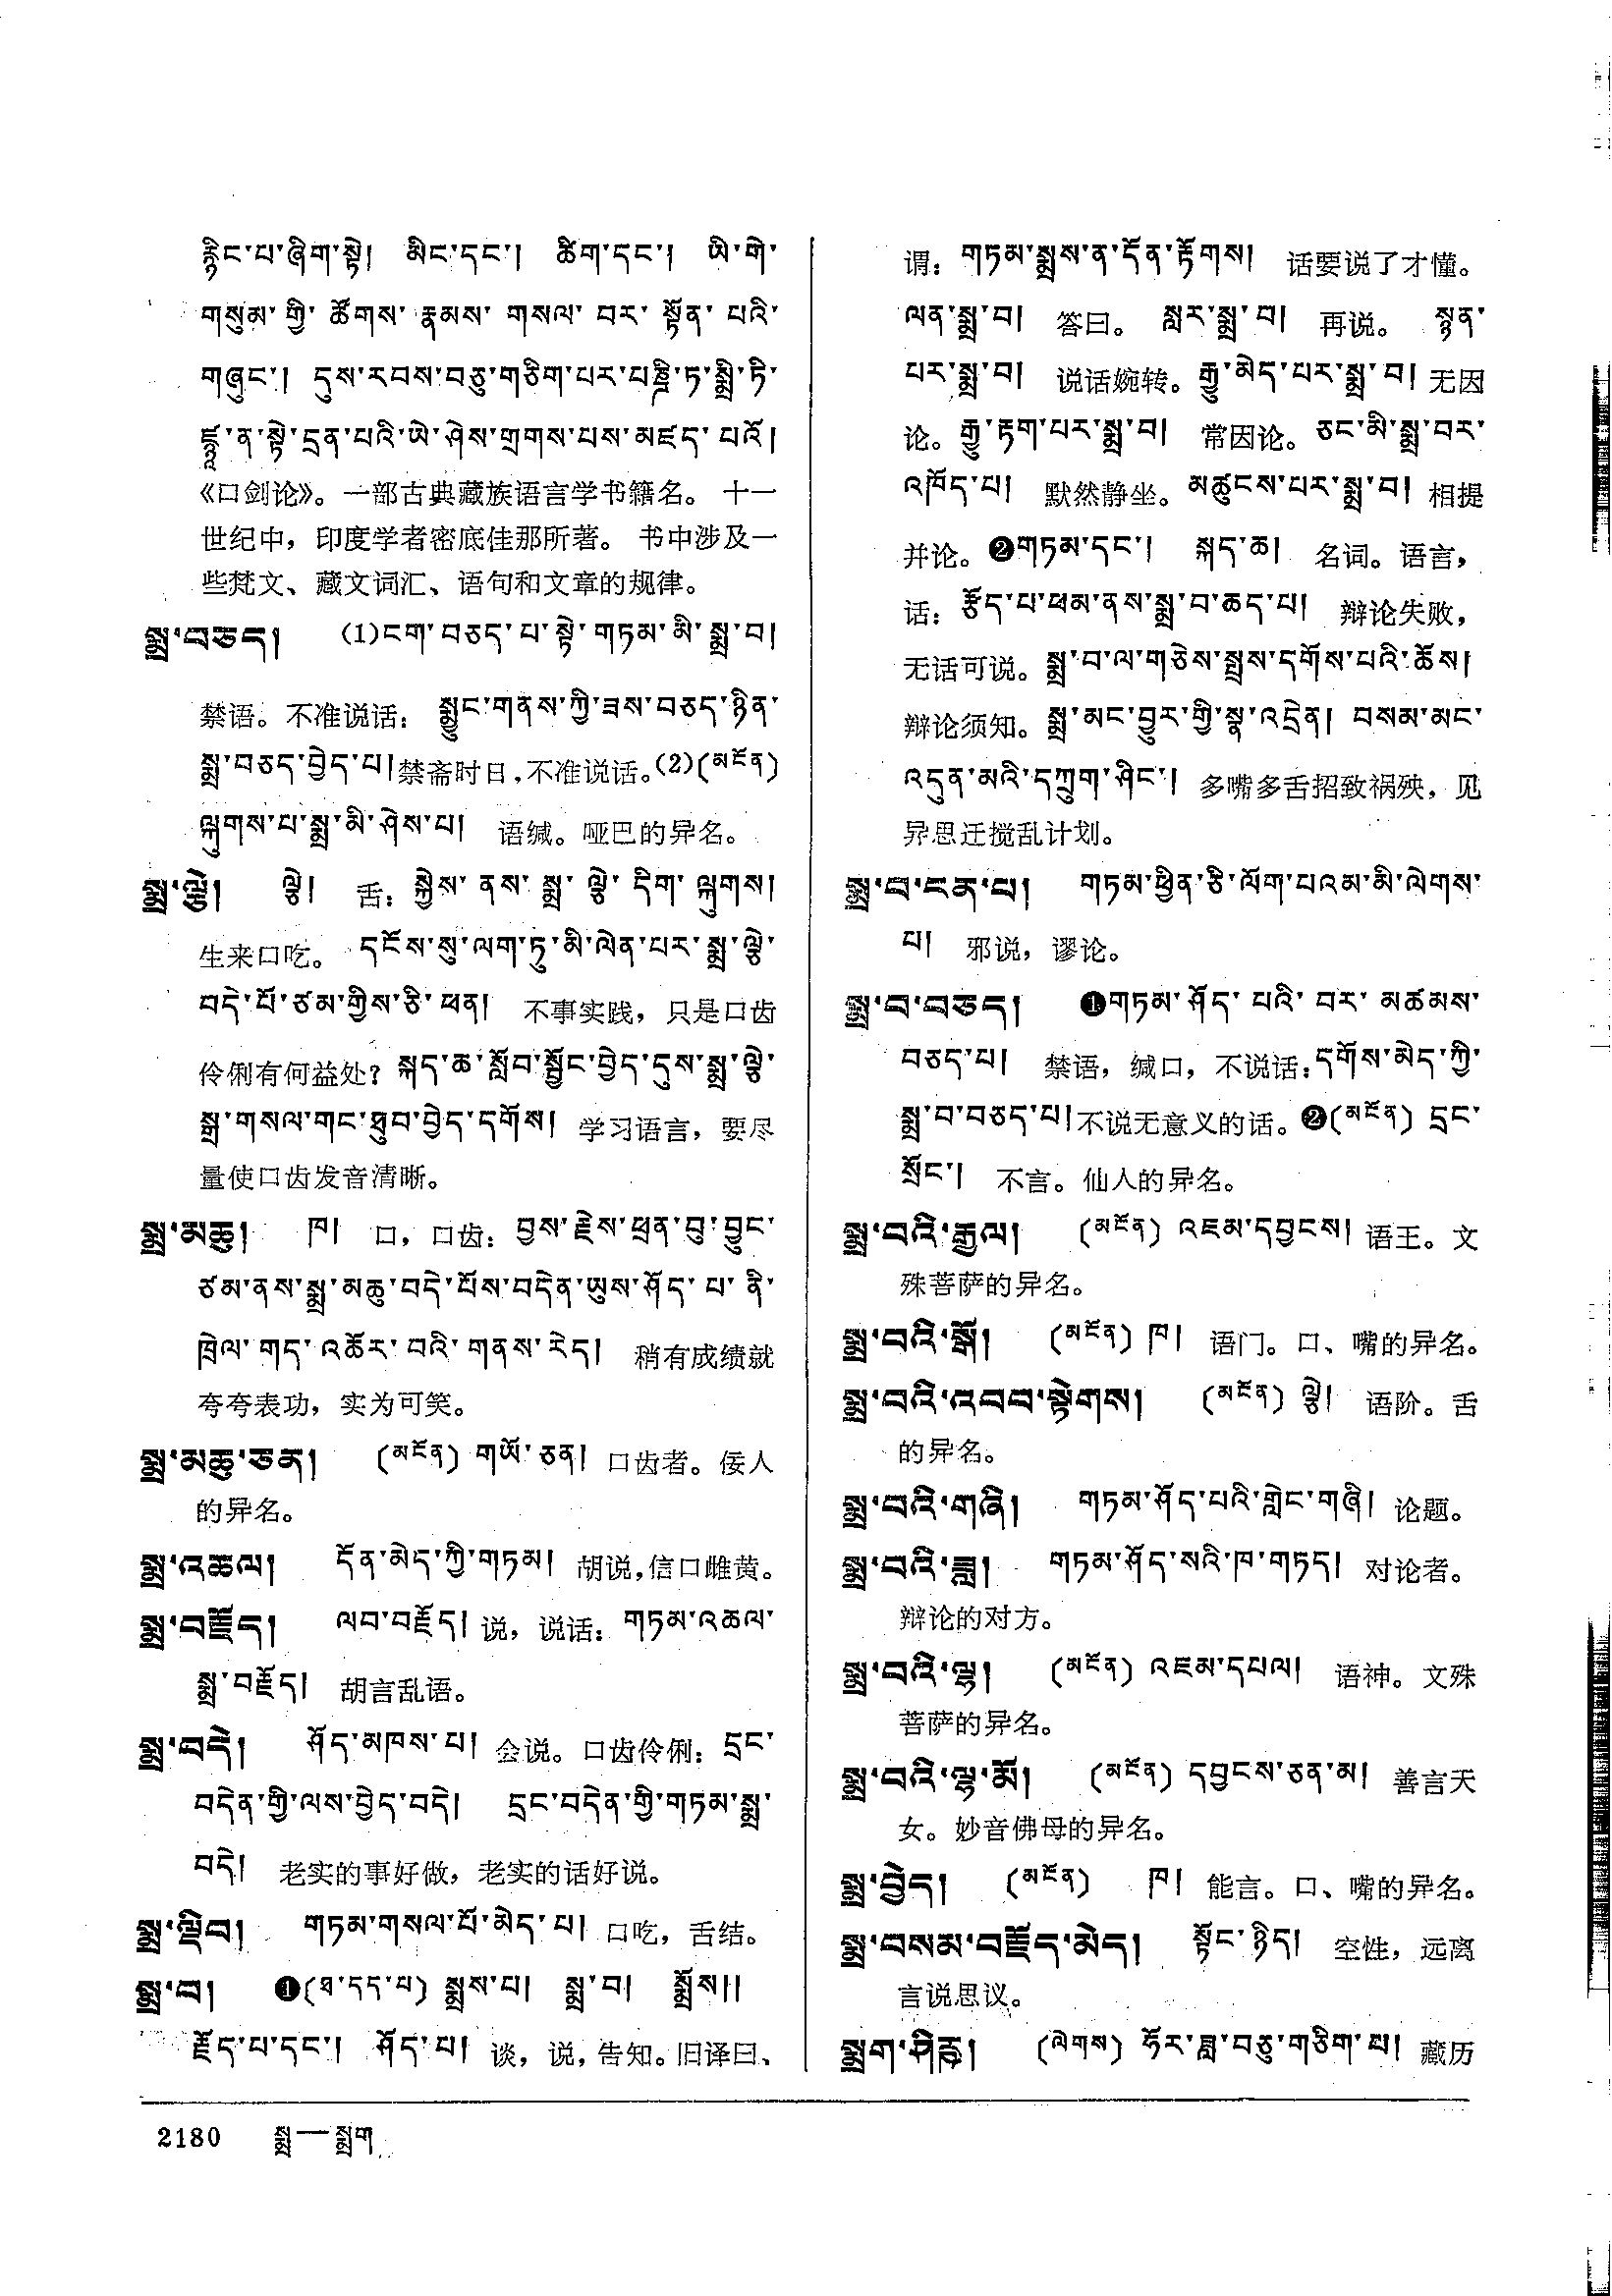 རྙིང་པ་ཞིག་སྟེ། མིང་དང་། ཚིག་དང་། ཡི་གེ་
གསུམ་གྱི་ ཚོགས་ རྣམས་ གསལ་ བར་ སྟོན་ པའི་
གཞུང་། དུས་རབས་བཅུ་གཅིག་པར་པཎྜི་ཏ་སྨྲི་ཏི་
ཛྙཱ་ན་སྟེ་དྲན་པའི་ཡེ་ཤེས་གྲགས་པས་མཛད་པའོ།
《口剑论》。一部古典藏族语言学书籍名。 十一
世纪中，印度学者密底佳那所著。 书中涉及一
些梵文、藏文词汇、语句和文章的规律。
སྨྲ་བཅད། (1)ངག་བཅད་པ་སྟེ་གཏམ་མི་སྨྲ་བ།
禁语。不准说话： སྨྱུང་གནས་ཀྱི་ཟས་བཅད་ཉིན་
སྨྲ་བཅད་བྱེད་པ།禁斋时日，不准说话。(2)(མངོན)
ལྐུགས་པ་སྨྲ་མི་ཤེས་པ། 语缄。哑巴的异名。
སྨྲ་ལྕེ། ལྕེ། 舌：སྐྱེས་ ནས་ སྨྲ་ ལྕེ་ དིག་ ལྐུགས།
生来口吃。 དངོས་སུ་ལག་ཏུ་མི་ལེན་པར་སྨྲ་ལྕེ་
བདེ་པོ་ཙམ་གྱིས་ཅི་ཕན། 不事实践，只是口齿
伶俐有何益处？སྐད་ཆ་སློབ་སྦྱོང་བྱེད་དུས་སྨྲ་ལྕེ་
སྒྲ་གསལ་གང་ཐུབ་བྱེད་དགོས། 学习语言，要尽
量使口齿发音清晰。
སྨྲ་མཆུ། ཁ། 口，口齿：བྱས་རྗེས་ཕྲན་བུ་བྱུང་
ཙམ་ནས་སྨྲ་མཆུ་བདེ་པོས་བདེན་ཡུས་ཤོད་པ་ནི་
ཁྲེལ་གད་འཚོར་བའི་གནས་རེད། 稍有成绩就
夸夸表功，实为可笑。
སྨྲ་མཆུ་ཅན། (མངོན) གཡོ་ཅན། 口齿者。佞人
的异名。
སྨྲ་འཆལ། དོན་མེད་ཀྱི་གཏམ། 胡说，信口雌黄。
སྨྲ་བརྗོད། ལབ་བརྗོད། 说，说话：གཏམ་འཆལ་
སྨྲ་བརྗོད། 胡言乱语。
སྨྲ་བདེ། ཤོད་མཁས་པ། 会说。口齿伶俐：དྲང་
བདེན་གྱི་ལས་བྱེད་བདེ། དྲང་བདེན་གྱི་གཏམ་སྨྲ་
བདེ། 老实的事好做，老实的话好说。
སྨྲ་ལྡིབ། གཏམ་གསལ་པོ་མེད་པ། 口吃，舌结。
སྨྲ་བ། ❶(ཐ་དད་པ) སྨྲས་པ། སྨྲ་བ། སྨྲོས།།
རྗོད་པ་དང་། ཤོད་པ། 谈，说，告知。旧译曰、
谓：གཏམ་སྨྲས་ན་དོན་རྟོགས། 话要说了才懂。
ལན་སྨྲ་བ། 答曰。 སླར་སྨྲ་བ། 再说。 སྙན་
པར་སྨྲ་བ། 说话婉转。རྒྱུ་མེད་པར་སྨྲ་བ།无因
论。རྒྱུ་རྟག་པར་སྨྲ་བ། 常因论。ཅང་མི་སྨྲ་བར་
འཁོད་པ། 默然静坐。མཚུངས་པར་སྨྲ་བ། 相提
并论。❷གཏམ་དང་། སྐད་ཆ། 名词。语言，
话：རྩོད་པ་ཕམ་ནས་སྨྲ་བ་ཆད་པ། 辩论失败，
无话可说。སྨྲ་བ་ལ་གཅེས་སྤྲས་དགོས་པའི་ཆོས།
辩论须知。སྨྲ་མང་བྱུར་གྱི་སྣ་འདྲེན། བསམ་མང་
འདུན་མའི་དཀྲུག་ཤིང་། 多嘴多舌招致祸殃，见
异思迁搅乱计划。
སྨྲ་བ་ངན་པ། གཏམ་ཕྱིན་ཅི་ལོག་པའམ་མི་ལེགས་
པ། 邪说，谬论。
སྨྲ་བ་བཅད། ❶གཏམ་ཤོད་ པའི་ བར་ མཚམས་
བཅད་པ། 禁语，缄口，不说话：དགོས་མེད་ཀྱི་
སྨྲ་བ་བཅད་པ།不说无意义的话。❷(མངོན) དྲང་
སྲོང་། 不言。仙人的异名。
སྨྲ་བའི་རྒྱལ། (མངོན) འཇམ་དབྱངས། 语王。文
殊菩萨的异名。
སྨྲ་བའི་སྒོ། (མངོན) ཁ། 语门。口、嘴的异名。
སྨྲ་བའི་འབབ་སྟེགས། (མངོན) ལྕེ། 语阶。舌
的异名。
སྨྲ་བའི་གཞི། གཏམ་ཤོད་པའི་གླེང་གཞི། 论题。
སྨྲ་བའི་ཟླ། གཏམ་ཤོད་སའི་ཁ་གཏད། 对论者。
辩论的对方。
སྨྲ་བའི་ལྷ། (མངོན) འཇམ་དཔལ། 语神。文殊
菩萨的异名。
སྨྲ་བའི་ལྷ་མོ། (མངོན) དབྱངས་ཅན་མ། 善言天
女。妙音佛母的异名。
སྨྲ་བྱེད། (མངོན) ཁ། 能言。口、嘴的异名。
སྨྲ་བསམ་བརྗོད་མེད། སྟོང་ཉིད། 空性，远离
言说思议。
སྨྲག་ཤིརྵ། (ལེགས) ཧོར་ཟླ་བཅུ་གཅིག་པ། 藏历
2180 སྨྲ—སྨྲག